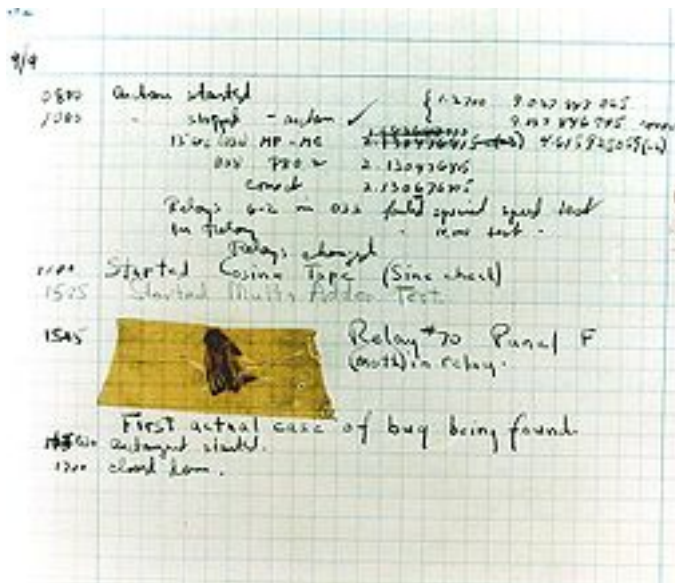 9/9
0800 Antan started
1000 " stopped - antan ✓ { 1.2700 9.037 847 025
9.037 846 995 correct
13" uc (032) MP - MC 2.130476415 (-3) 4.615925059 (-2)
033 PRO 2 2.130476415
correct 2.130676415
Relays 6-2 in 033 failed special speed test
in relay " " test .
Relays changed
1100 Started Cosine Tape (Sine check)
1525 Started Multi Adder Test.
1545 Relay #70 Panel F
(moth) in relay.
First actual case of bug being found.
1630 antangent started.
1700 closed down.